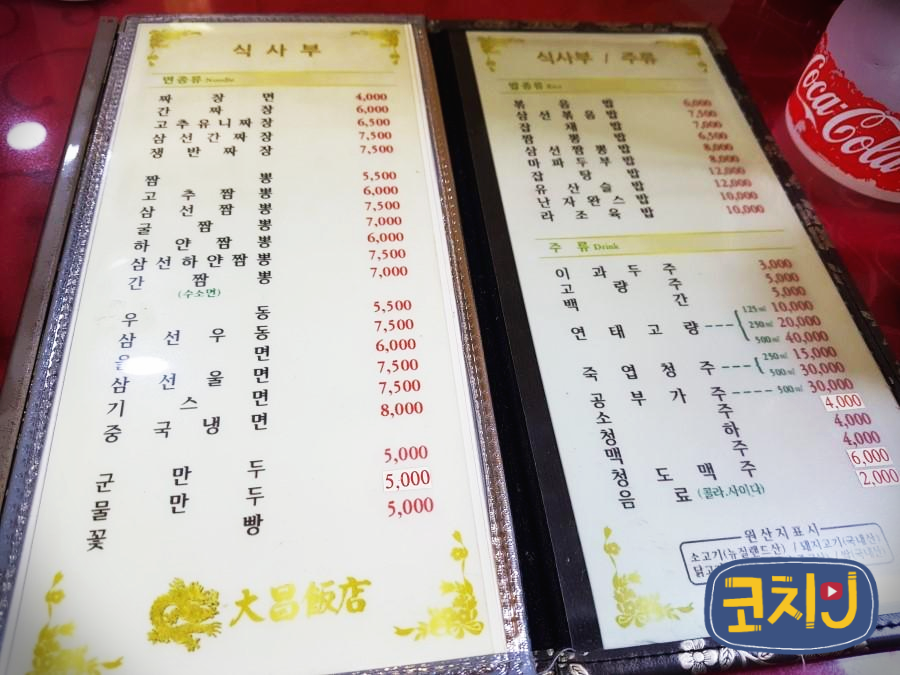 식사부
면종류 Noodle
짜장면 4,000
간짜장 6,000
고추유니짜장 6,500
삼선간짜장 7,500
쟁반짜장 7,500
짬뽕 5,500
고추짬뽕 6,000
삼선짬뽕 7,500
굴짬뽕 7,000
하얀짬뽕 6,000
삼선하얀짬뽕 7,500
간짬뽕 7,000
(수소면)
우동 5,500
삼선우동 7,500
울면 6,000
삼선울면 7,500
기스면 7,500
중국냉면 8,000
군만두 5,000
물만두 5,000
꽃빵 5,000
大昌飯店
식사부 / 주류
밥종류 Rice
볶음밥 6,000
삼선볶음밥 7,500
잡채밥 7,000
짬뽕밥 6,500
삼선짬뽕밥 8,000
마파두부밥 8,000
잡탕밥 12,000
유산슬밥 12,000
난자완스밥 10,000
라조육밥 10,000
주류 Drink
이과두주 3,000
고량주 5,000
백간 5,000
연태고량 125㎖ 10,000
250㎖ 20,000
500㎖ 40,000
죽엽청주 250㎖ 15,000
500㎖ 30,000
공부가주 500㎖ 30,000
소주 4,000
청하 4,000
맥주 4,000
청도맥주 6,000
음료 (콜라.사이다) 2,000
원산지표시
소고기(뉴질랜드산) / 돼지고기(국내산)
Coca-Cola
코치J